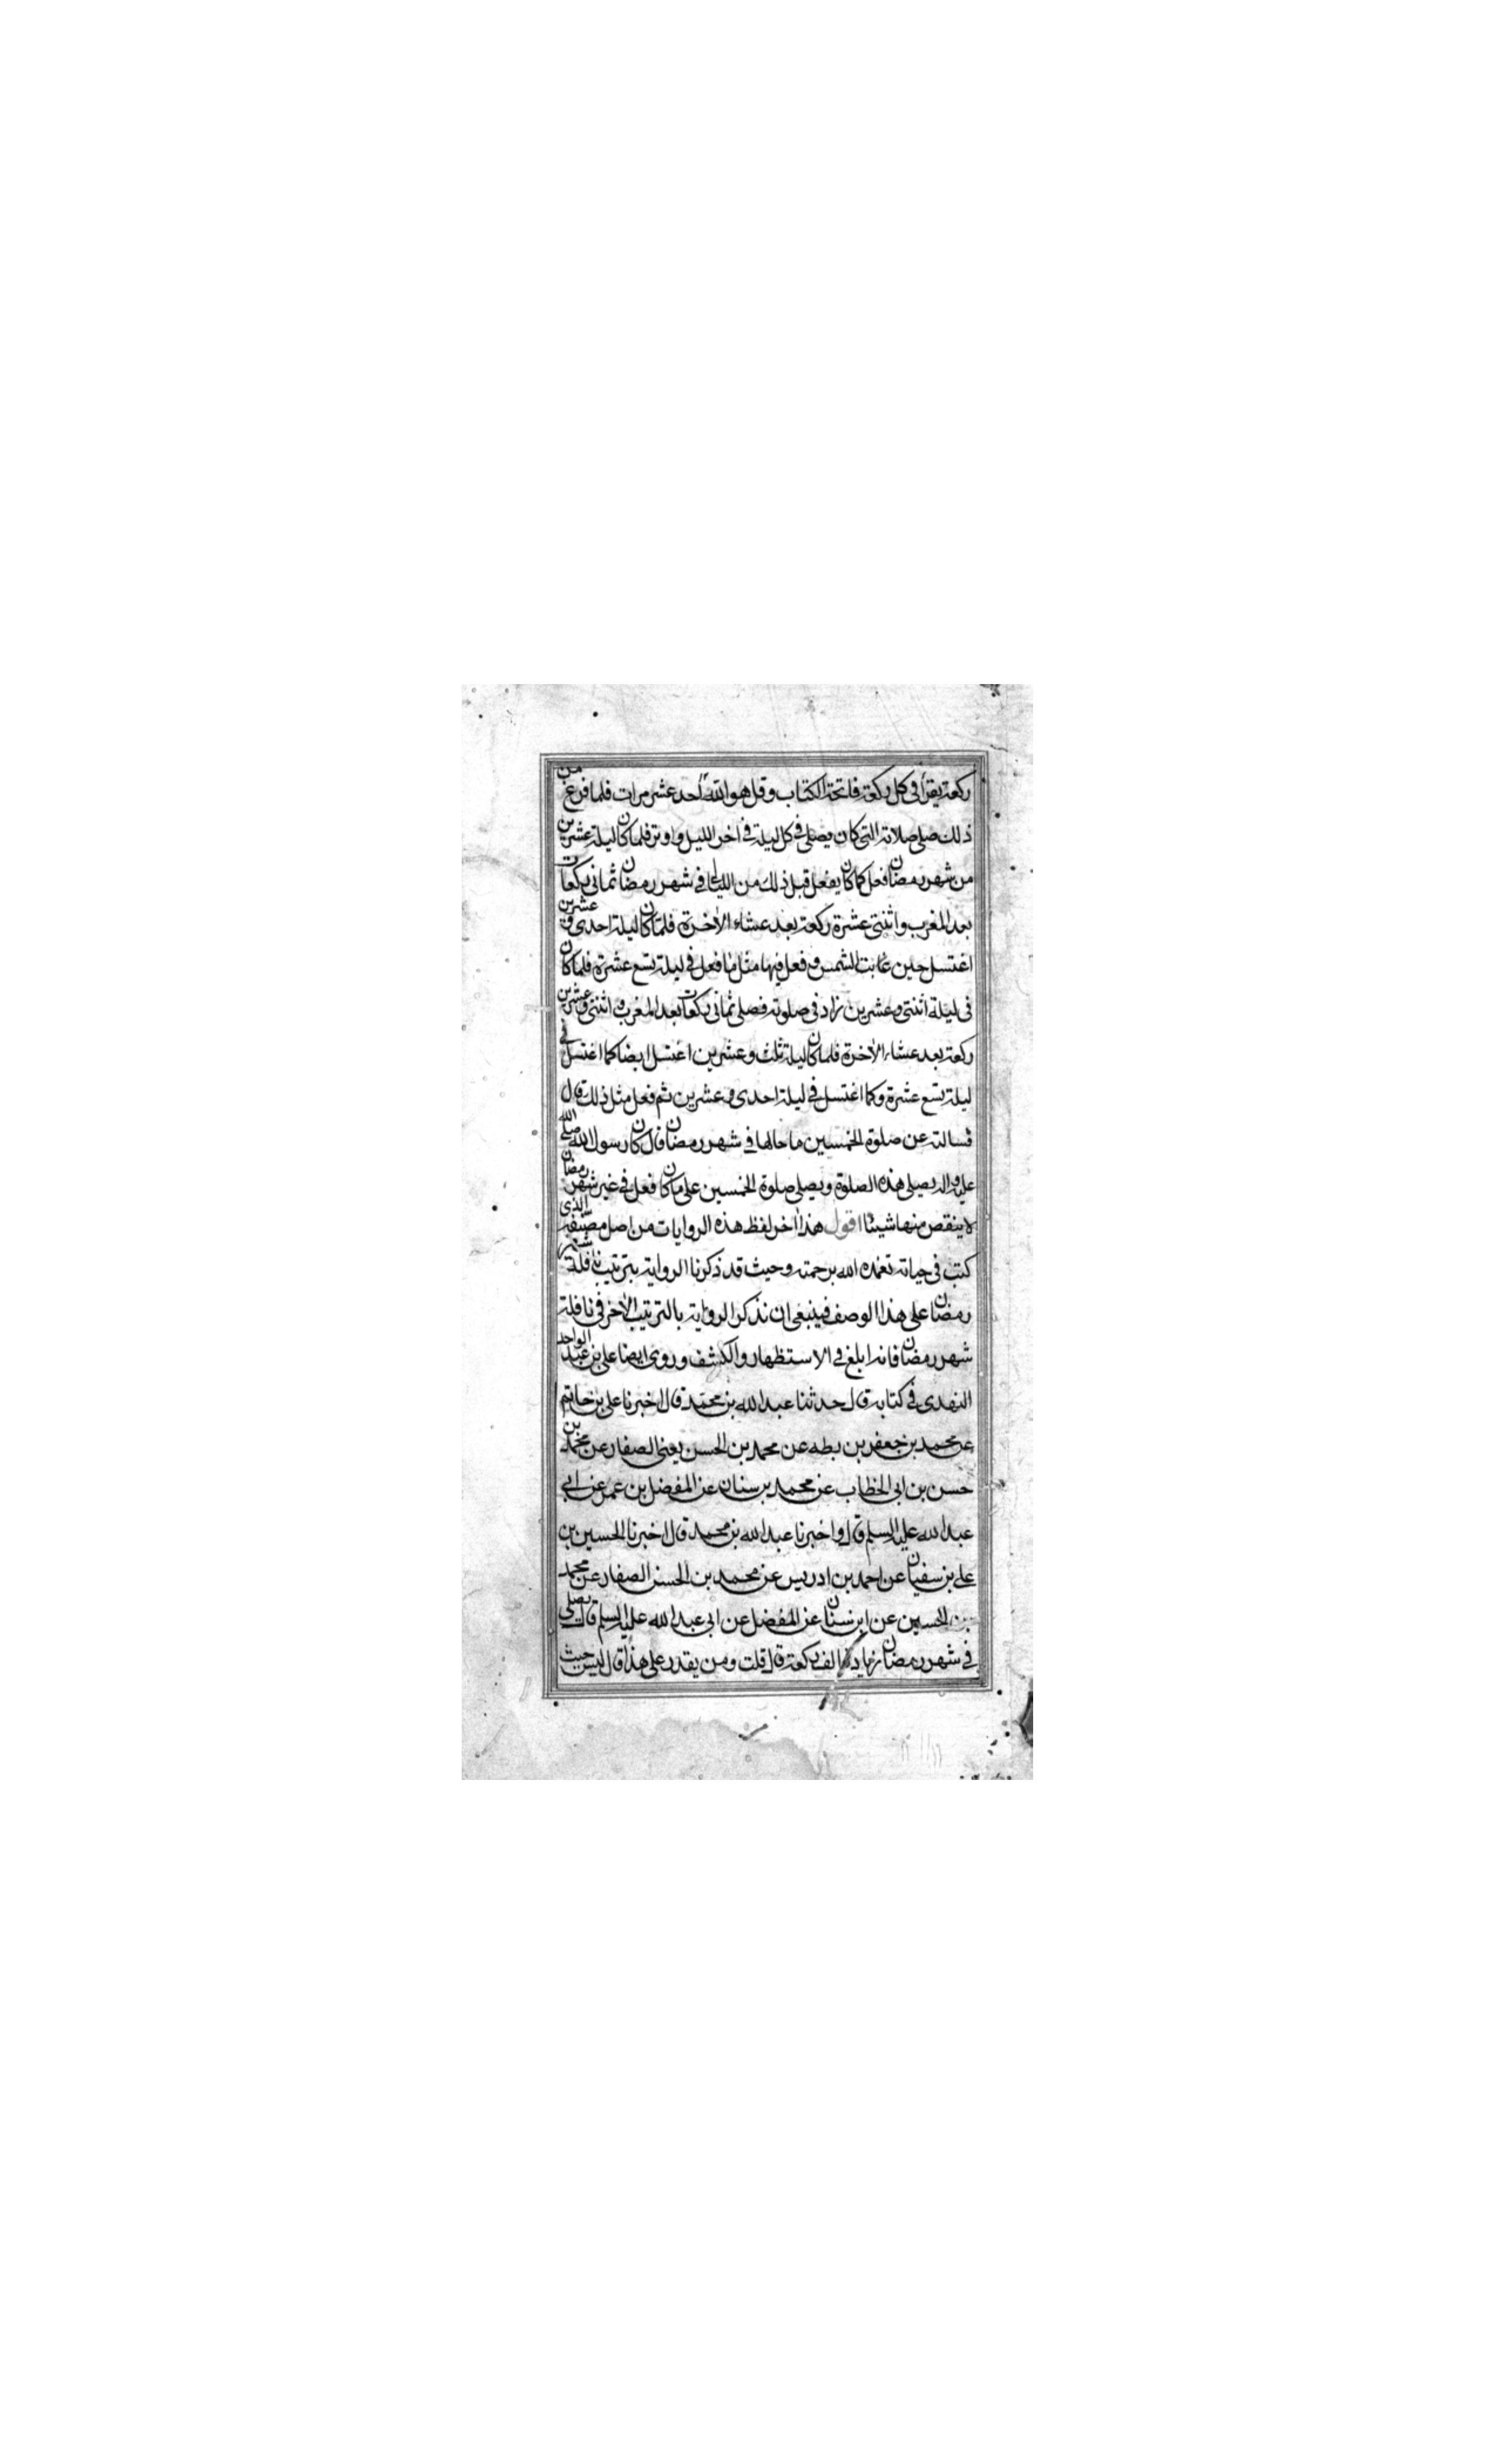 ركعة يقرأ فى كل ركعة فاتحة الكتاب وقل هو الله احد عشر مرات فلما فرغ من
ذلك صلى صلاته التى كان يصلى فى كل ليلة فى اخر الليل واوتر فلما كان ليلة عشرين
من شهر رمضان فعل كما كان يفعل قبل ذلك من الليالى فى شهر رمضان ثمانى ركعات
بعد المغرب واثنتى عشرة ركعة بعد عشاء الاخرة فلما كان ليلة احدى وعشرين
اغتسل حين غابت الشمس وفعل فيها مثل ما فعل فى ليلة تسع عشرة فلما كان
فى ليلة اثنتى وعشرين زاد فى صلوته فصلى ثمانى ركعات بعد المغرب واثنتى وعشرين
ركعة بعد عشاء الاخرة فلما كان ليلة ثلث وعشرين اغتسل ايضا كما اغتسل فى
ليلة تسع عشرة وكما اغتسل فى ليلة احدى وعشرين ثم فعل مثل ذلك قال
فسالته عن صلوة الخمسين ما حالها فى شهر رمضان قال كان رسول الله صلى الله
عليه واله يصلى هذه الصلوة ويصلى صلوة الخمسين على ما كان فعل فى غير شهر رمضان
لا ينقص منها شيئا اقول هذا اخر لفظ هذه الروايات من اصل مصنفه الذى
كتب فى حياته تغمده الله برحمته وحيث قد ذكرنا الرواية بترتيب نافلة شهر
رمضان على هذا الوصف فينبغى ان نذكر الرواية بالترتيب الاخر فى نافلة
شهر رمضان فانه ابلغ فى الاستظهار والكشف وروى ايضا على بن عبد الواحد
النهدى فى كتابه قال حدثنا عبد الله بن محمد قال اخبرنا على بن حاتم
عن محمد بن جعفر بن بطه عن محمد بن الحسن يعنى الصفار عن محمد بن
حسن بن ابى الخطاب عن محمد بن سنان عن المفضل بن عمر عن ابى
عبد الله عليه السلم قال واخبرنا عبد الله بن محمد قال اخبرنا الحسين بن
على بن سفيان عن احمد بن ادريس عن محمد بن الحسن الصفار عن محمد
بن الحسين عن ابن سنان عن المفضل عن ابى عبد الله عليه السلم قال يصلى
فى شهر رمضان زيادة الف ركعة قال قلت ومن يقدر على هذا قال ليس حيث